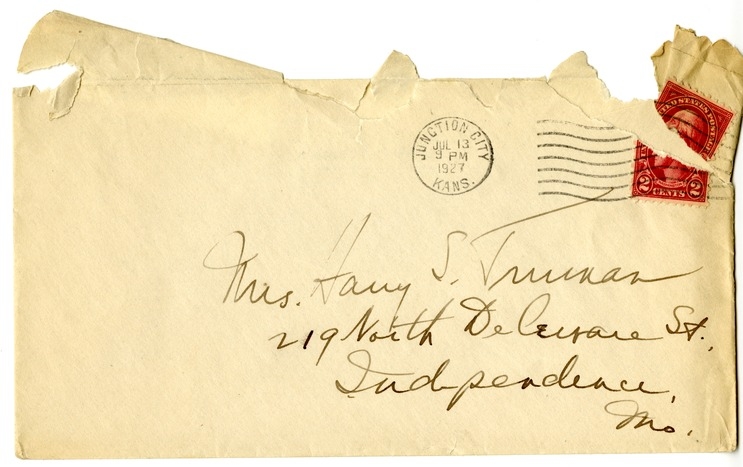 JUNCTION CITY
JUL 13
9 PM
1927
KANS.
UNITED STATES POSTAGE
2 CENTS 2
Mrs. Harry S. Truman
219 North Delaware St.,
Independence,
Mo.